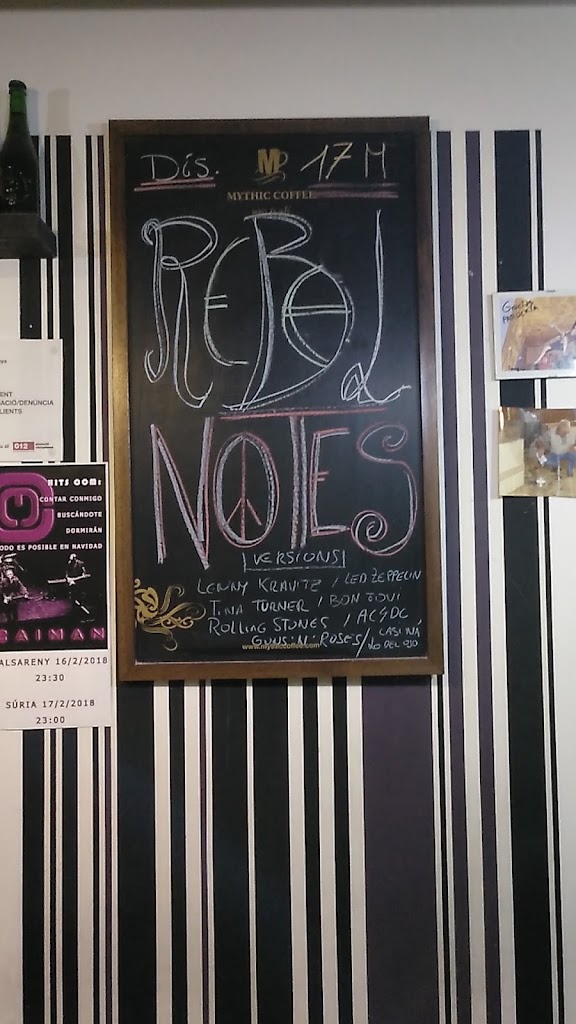 Dis.
17 M
MP
MYTHIC COFFEE
REBEL
NOTES
VERSIONS
LENNY KRAVITZ / LED ZEPPELIN
TINA TURNER / BON JOVI
ROLLING STONES / AC/DC
GUNS N' ROSES /
NO DEL OJO
www.mythiccoffee.com
ENT
ACIÓ/DENÚNCIA
LIENTS
012
HITS COM:
CONTAR CONMIGO
BUSCÁNDOTE
DORMIRÁN
ODO ES POSIBLE EN NAVIDAD
CAIMAN
ALSARENY 16/2/2018
23:30
SÚRIA 17/2/2018
23:00